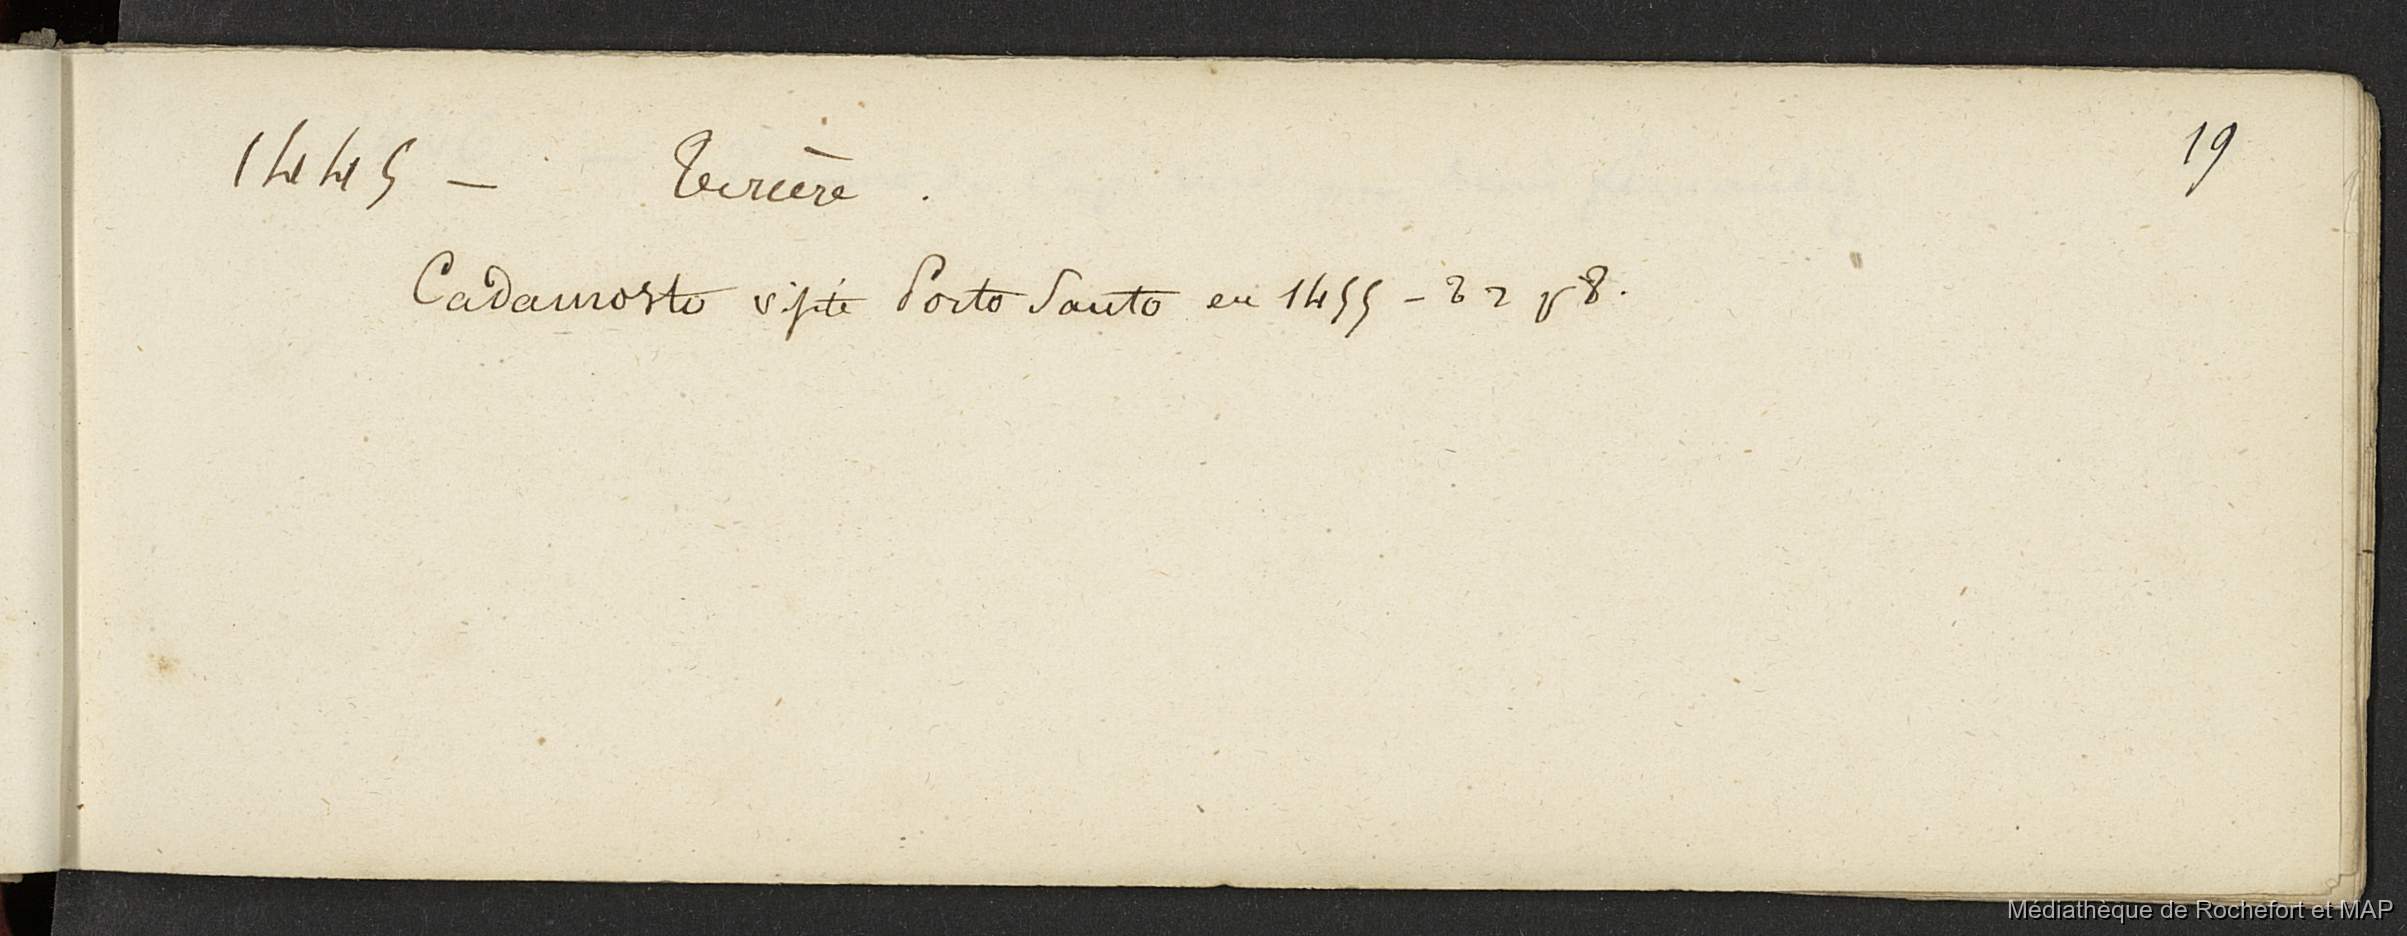 1445 — Tercère . 19
Cadamosto visite Porto Santo en 1455 - 22 p 8.
Médiathèque de Rochefort et MAP